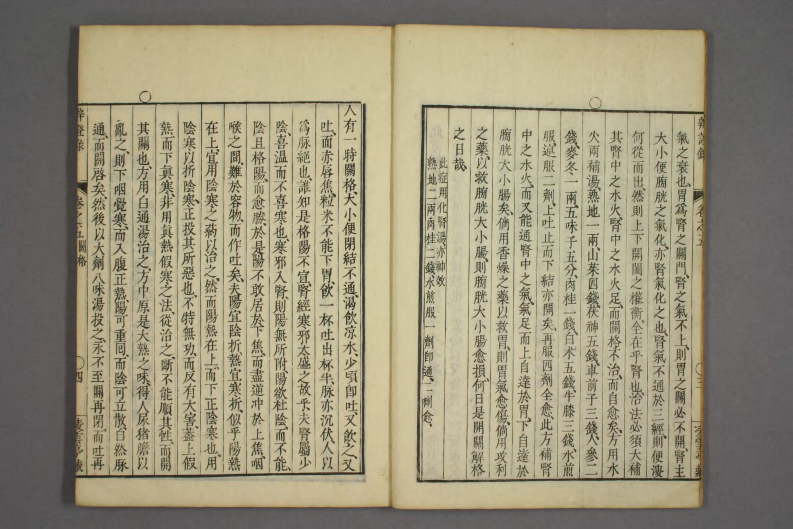 辨證錄 卷之五
氣之衰也胃爲腎之關門腎之氣不上則胃之關必不開腎主
大小便膀胱之氣化亦腎氣化之也腎氣不通於三經則便溲
何從而出然則上下開闔之權衡全在乎腎也治法必須大補
其腎中之水火腎中之水火足而關格不治而自愈矣方用水
火兩補湯熟地一兩山茱四錢茯神五錢車前子三錢人參二
錢麥冬一兩五味子五分肉桂一錢白朮五錢牛膝三錢水煎
服連服二劑上吐止而下結亦開矣再服四劑全愈此方補腎
中之水火而又能通腎中之氣氣足而上自達於胃下自達於
膀胱大小腸矣倘用香燥之藥以救胃則胃氣愈傷倘用攻利
之藥以救膀胱大小腸則膀胱大小腸愈損何日是開關解格
之日哉
此症用化腎湯亦神效
熟地二兩肉桂二錢水煎服一劑卽通二劑愈
人有一時關格大小便閉結不通渴飲凉水少頃卽吐又飲之又
吐面赤唇焦粒米不能下胃飲一杯吐出杯半脉亦沉伏人以
爲脉絕也誰知是格陽不宣腎經寒邪太盛之故乎夫腎屬少
陰喜溫而不喜寒也寒邪入腎則陽無所附陽欲杜陰而不能
陰且格陽而愈勝於是陽不敢居於下焦而盡逆冲於上焦咽
喉之間難於容物而作吐矣夫陽宜陰折熱宜寒折似乎陽熱
在上宜用陰寒之藥以治之然而陽熱在上而下正陰寒也用
陰寒以折陰寒正投其所惡也不特無功而反有大害盖上假
熱而下眞寒非用眞熱假寒之法從治之斷不能順其性而開
其關也方用白通湯治之方中原是大熱之味得人尿猪膽以
亂之則下咽覺寒而入腹正熱陽可重囘而陰可立散自然脉
通而關啓矣然後以大劑八味湯投之永不至關再閉而吐再
辨證錄 卷之五關格 四